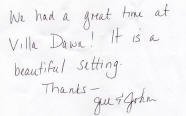 We had a great time at
Villa Dawn! It is a
beautiful setting.
Thanks—
& John